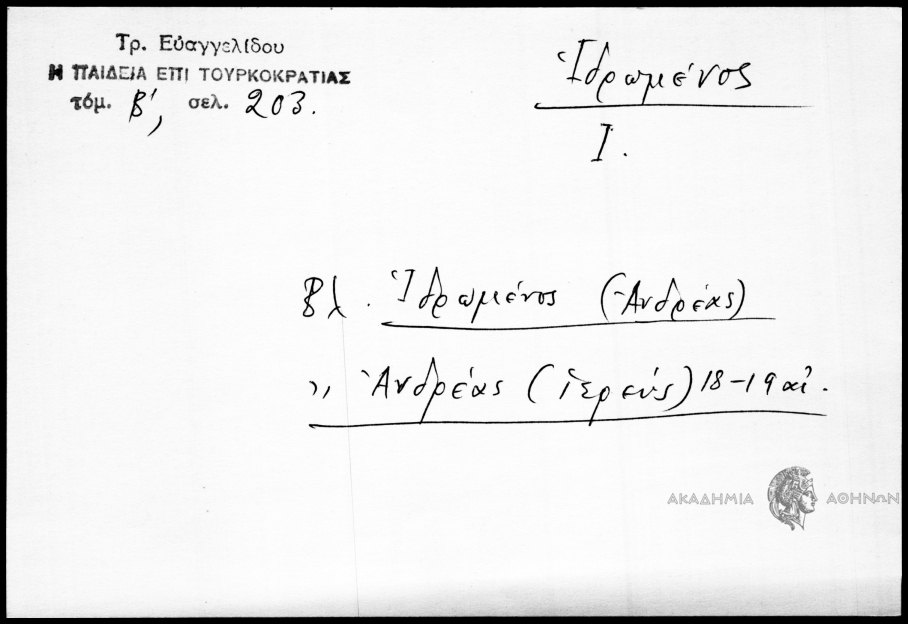 Τρ. Εὐαγγελίδου
Η ΠΑΙΔΕΙΑ ΕΠΙ ΤΟΥΡΚΟΚΡΑΤΙΑΣ
τόμ. Β', σελ. 203.
Ἱδρωμένος
Ι.
Βλ. Ἱδρωμένος (Ἀνδρέας)
,, Ἀνδρέας (ἱερεύς) 18-19 αἰ.
ΑΚΑΔΗΜΙΑ ΑΘΗΝΩΝ